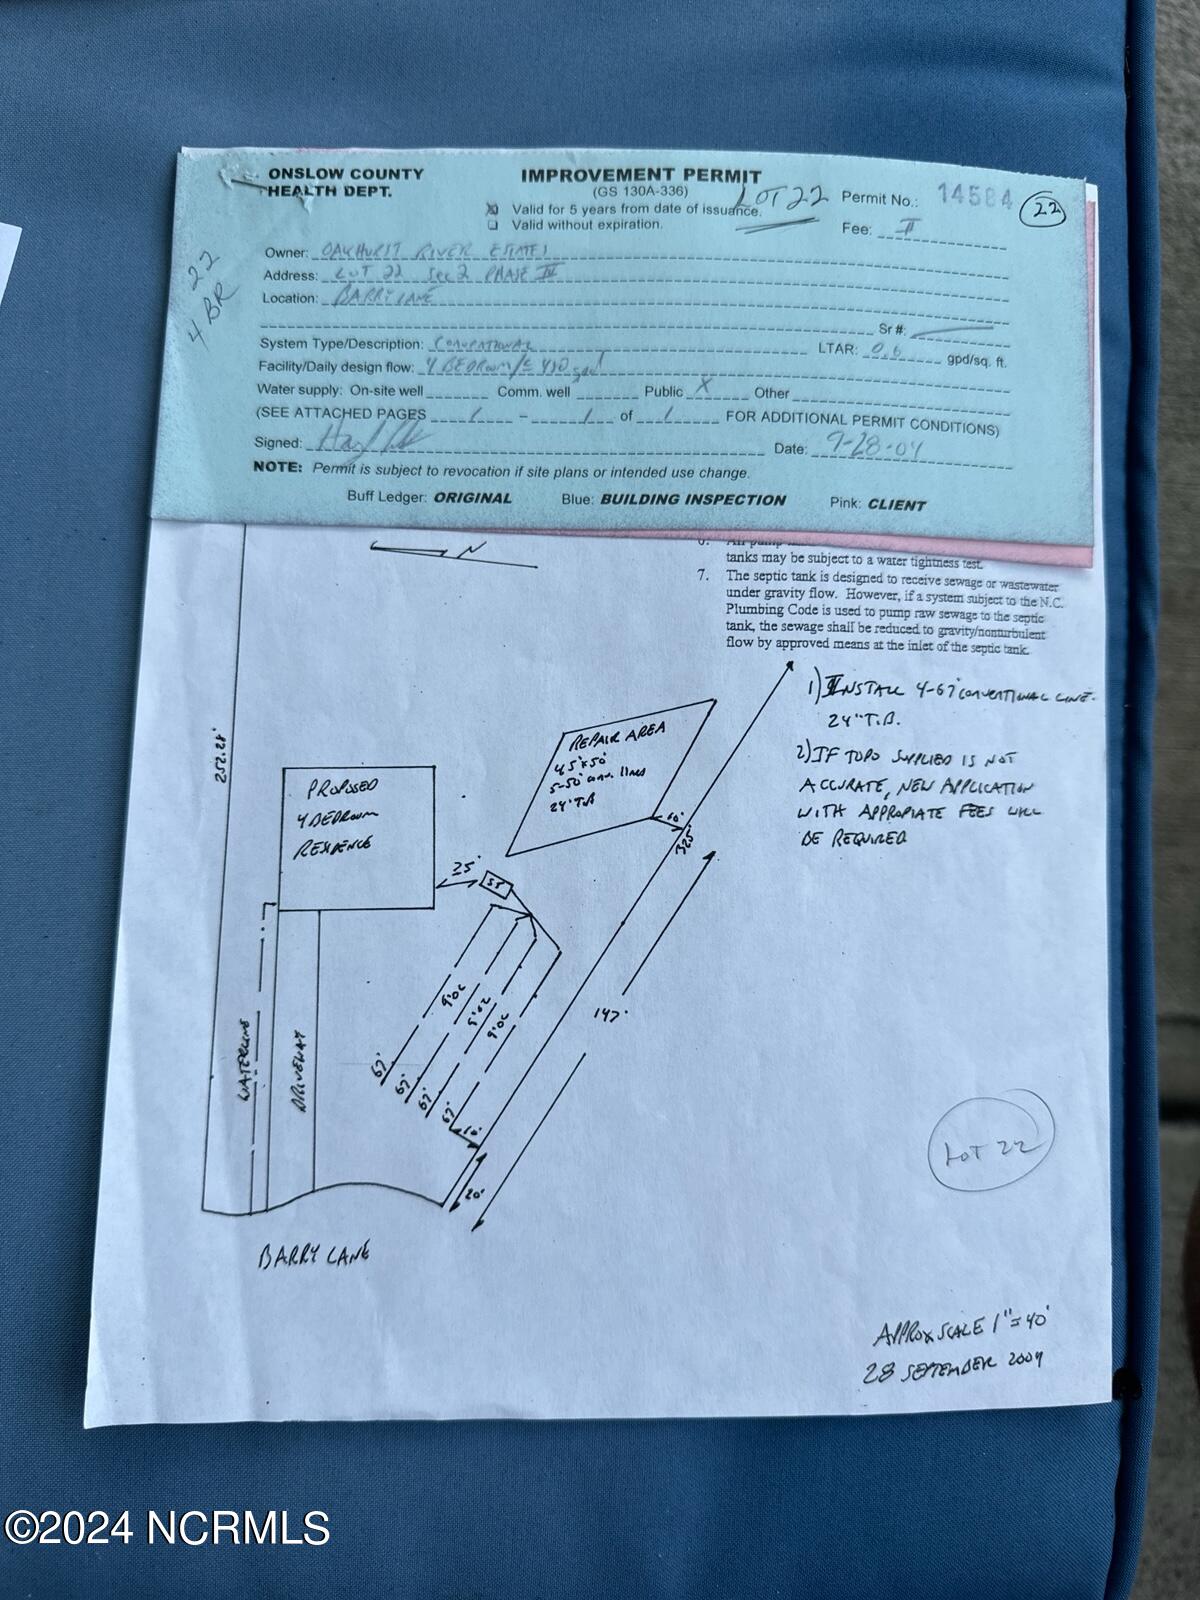 ONSLOW COUNTY
HEALTH DEPT.
IMPROVEMENT PERMIT
(GS 130A-336)
LOT 22
Permit No.: 14584
22
Valid for 5 years from date of issuance.
Valid without expiration.
Fee: II
22
4 BR
Owner: OAKHURST RIVER ESTATES
Address: LOT 22 SEC 2 PHASE IV
Location: BARRY LANE
Sr #:
System Type/Description: CONVENTIONAL
LTAR: 0.6 gpd/sq. ft.
Facility/Daily design flow: 4 BEDROOM/≤ 480 gpd
Water supply: On-site well Comm. well Public X Other
(SEE ATTACHED PAGES 1 - 1 of 1 FOR ADDITIONAL PERMIT CONDITIONS)
Signed:
Date: 9-28-04
NOTE: Permit is subject to revocation if site plans or intended use change.
Buff Ledger: ORIGINAL Blue: BUILDING INSPECTION Pink: CLIENT
N
6. All pump
tanks may be subject to a water tightness test.
7. The septic tank is designed to receive sewage or wastewater
under gravity flow. However, if a system subject to the N.C.
Plumbing Code is used to pump raw sewage to the septic
tank, the sewage shall be reduced to gravity/nonturbulent
flow by approved means at the inlet of the septic tank.
1) INSTALL 4-67' CONVENTIONAL LINE.
24" T.B.
2) IF TOPO SUPPLIED IS NOT
ACCURATE, NEW APPLICATION
WITH APPROPIATE FEES WILL
BE REQUIRED
252.28'
PROPOSED
4 BEDROOM
RESIDENCE
REPAIR AREA
45'x50'
5-50' conv. lines
24" T.B
10'
325'
25'
ST
9'OC
9'OC
9'OC
67'
67'
67'
67'
10'
20'
147'
WATERLINE
DRIVEWAY
BARRY LANE
LOT 22
APPROX SCALE 1"=40'
28 SEPTEMBER 2004
©2024 NCRMLS